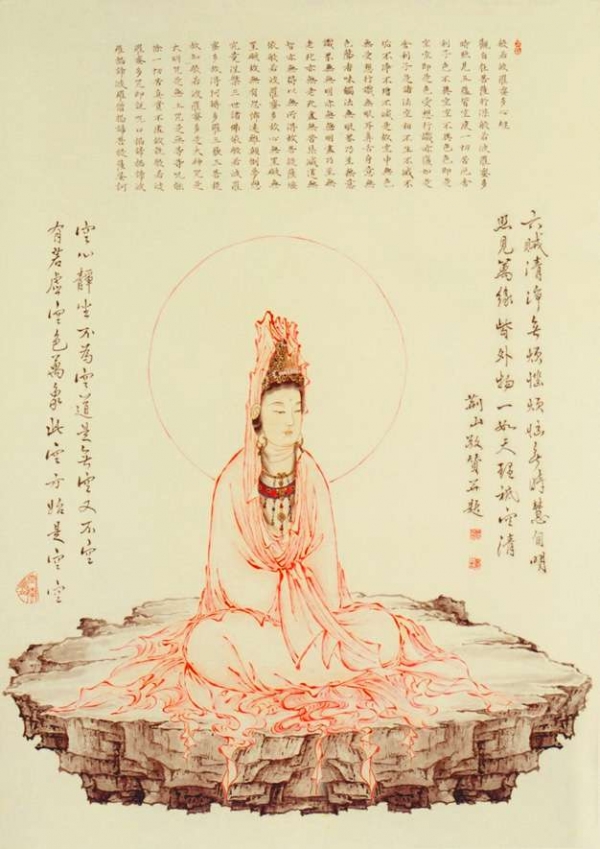 般若波羅蜜多心經
觀自在菩薩行深般若波羅蜜多
時照見五蘊皆空度一切苦厄舍
利子色不異空空不異色色即是
空空即是色受想行識亦復如是
舍利子是諸法空相不生不滅不
垢不淨不增不減是故空中無色
無受想行識無眼耳鼻舌身意無
色聲香味觸法無眼界乃至無意
識界無無明亦無無明盡乃至無
老死亦無老死盡無苦集滅道無
智亦無得以無所得故菩提薩埵
依般若波羅蜜多故心無罣礙無
罣礙故無有恐怖遠離顛倒夢想
究竟涅槃三世諸佛依般若波羅
蜜多故得阿耨多羅三藐三菩提
故知般若波羅蜜多是大神咒是
大明咒是無上咒是無等等咒能
除一切苦真實不虛故說般若波
羅蜜多咒即說咒曰揭諦揭諦波
羅揭諦波羅僧揭諦菩提薩婆訶
六賊清淨無煩惱煩惱無時慧自明
照見萬緣皆外物一如天理祇空清
荊山敬贊并題
空心靜坐不為空道是無空又不空
有若虛空包萬象此空方始是空空